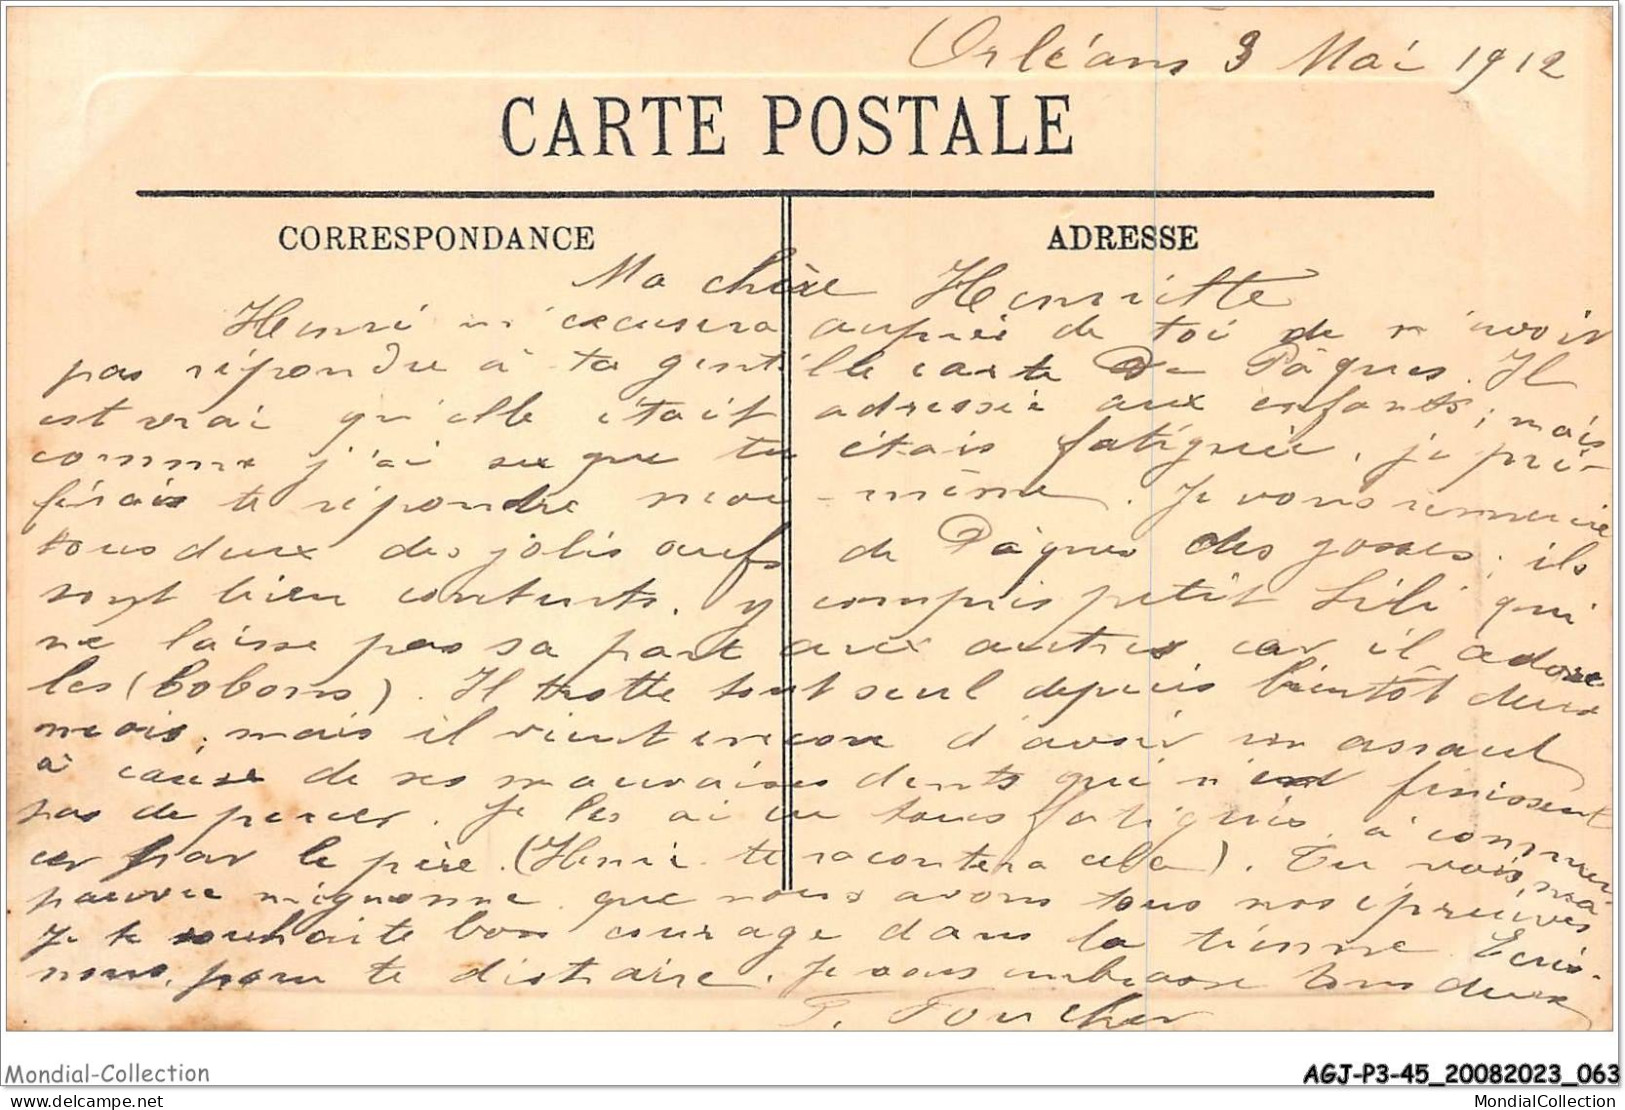 Orléans 3 Mai 1912
CARTE POSTALE
CORRESPONDANCE
ADRESSE
Ma chère Henriette
Henri m'excusera auprès de toi de n'avoir
pas répondre à ta gentille carte De Pâques. Il
est vrai qu'elle était adressée aux enfants ; mais
comme j'ai su que tu étais fatiguée, je pré-
férais te répondre moi-même. Je vous remercie
tous deux des jolis œufs de Pâques des gosses ; ils
sont bien contents. y compris petit Lili qui
ne laisse pas sa part aux autres car il adore
les (bobons). Il trotte tout seul depuis bientôt deux
mois ; mais il vient encore d'avoir un assaut
à cause de ses mauvaises dents qui n'en finissent
pas de percer. Je les ai eu tous fatigués, à commen-
cer par le père. (Henri te racontera cela). Tu vois, ma
pauvre mignonne que nous avons tous nos épreuves
Je te souhaite bon courage dans la tienne. Ecris-
nous, pour te distraire. Je vous embrasse tous deux
F. Foucher
Mondial-Collection
AGJ-P3-45_20082023_063
delcampe.net
MondialCollection